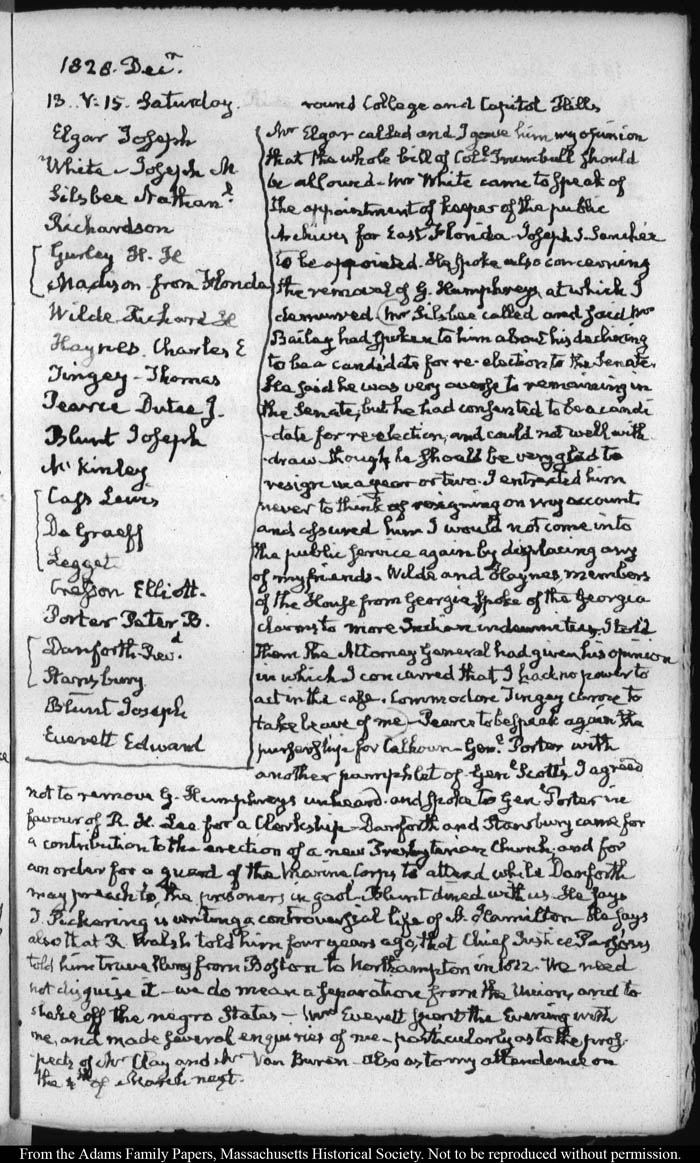 1828. Decr.
13. V:15. Saturday.
round College and Capitol Hills
Elgar Joseph
White - Joseph M
Silsbee Nathanl.
Richardson
Gurley H. H
Madison - from Florida
Wilde Richard H
Haynes. Charles E
Tingey - Thomas
Pearce Dutee J.
Blunt Joseph
McKinley
Cass Lewis
De Graeff
Legget
Cresson Elliott.
Porter Peter B.
Danforth Revd.
Stansbury
Blunt Joseph
Everett Edward
Mr Elgar called and I gave him my opinion
that the whole bill of Coll. Trumbull should
be allowed - Mr White came to speak of
the appointment of keeper of the public
Archives for East Florida - Joseph S. Sanchez
to be appointed. He spoke also concerning
the removal of G. Humphreys, at which I
demurred. Mr Silsbee called and said Mr
Bailey had spoken to him about his declining
to be a candidate for re-election to the Senate.
He said he was very averse to remaining in
the Senate, but he had consented to be a candi
-date for re-election, and could not well with
-draw - though he should be very glad to
resign in a year or two. I entreated him
never to think of resigning on my account
and assured him I would not come into
the public service again by displacing any
of my friends - Wilde and Haynes, members
of the House from Georgia, spoke of the Georgia
claims to more Indian indemnities. I told
them the Attorney General had given his opinion
in which I concurred that I had no power to
act in the case. Commodore Tingey came to
take leave of me - Pearce to bespeak again the
pursership for Calhoun - Genl. Porter with
another pamphlet of Genl Scott's. I agreed
not to remove G. Humphreys unheard. and spoke to Genl Porter in
favour of R. H. Lee for a Clerkship - Danforth and Stansbury came for
a contribution to the erection of a new Presbyterian Church; and for
an order for a guard of the Marine Corps to attend while Danforth
may preach to the prisoners in gaol. Blunt dined with us. He says
T. Pickering is writing a controversial life of A. Hamilton - He says
also that R. Walsh told him four years ago, that Chief Justice Parsons
told him travelling from Boston to Northampton in 1812. We need
not disguise it - we do mean a separation from the Union, and to
shake off the negro States - Mr Everett spent the Evening with
me, and made several enquiries of me - particularly as to the pros-
-pects of Mr Clay and Mr Van Buren - also as to my attendance on
the 4th of March next.
From the Adams Family Papers, Massachusetts Historical Society. Not to be reproduced without permission.